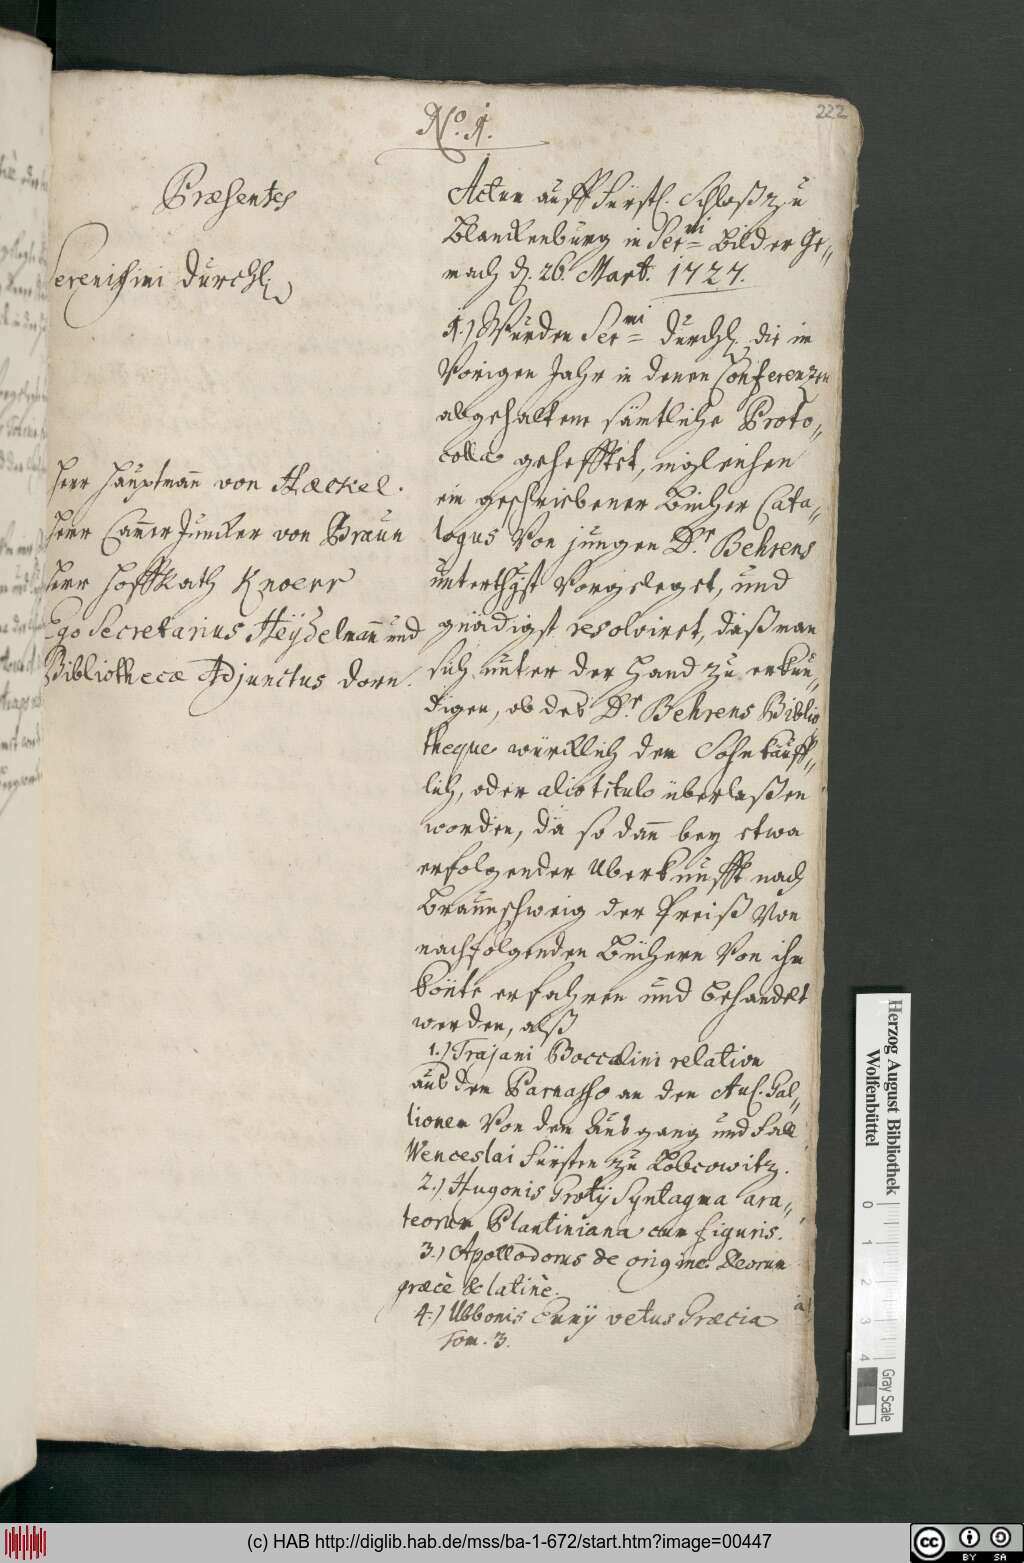 222
No. 1.
Præsentes
Serenissimi Durchl.
Herr Hauptmann von Hackel.
Herr Cam̄er Juncker von Braun
Herr Hoffrath Knoerr
Ego Secretarius Heÿdelman̄ und
Bibliothecæ Adjunctus Dorn.
Actum auff Fürstl. Schloß zu
Blanckenburg in Ser.mi Bilder Ge„
mach d. 26. Mart. 1727.
1.) Wurden Ser.mi Durchl. die im
Vorigen Jahr in denen Conferenzen
abgehaltene sämtliche Proto„
colla gehefftet, ingleichen
ein geschriebener Bücher Cata„
logus Von jungen Dr. Behrens
unterthgst Vorgeleget, und
gnädigst resolviret, daß man
sich unter der Hand zu erkun„
digen, ob des Dr. Behrens Biblio
theque würcklich dem Sohn käuff„
lich, oder alio titulo überlaßen
worden, da so dan̄ bey etwa
erfolgender Uberkunfft nach
Braunschweig der Preiß Von
nachfolgenden Büchern Von ihm
kön̄te erfahren und behandelt
werden, alß
1.) Trajani Boccalini relation
aus dem Parnasso an den Aul. Gal„
lionem Von dem Ausgang und Fall
Wenceslai Fürsten zu Lobcowitz.
2.) Hugonis Grotij Syntagma ara„
teorum Plantiniana cum figuris.
3.) Apollodorus de origine Deorum
græcè & latinè.
4.) Ubbonis Emmij vetus Græcia
Tom. 3.
Herzog August Bibliothek
Wolfenbüttel
0 1 2 3 4
Gray Scale
(c) HAB http://diglib.hab.de/mss/ba-1-672/start.htm?image=00447
cc BY SA